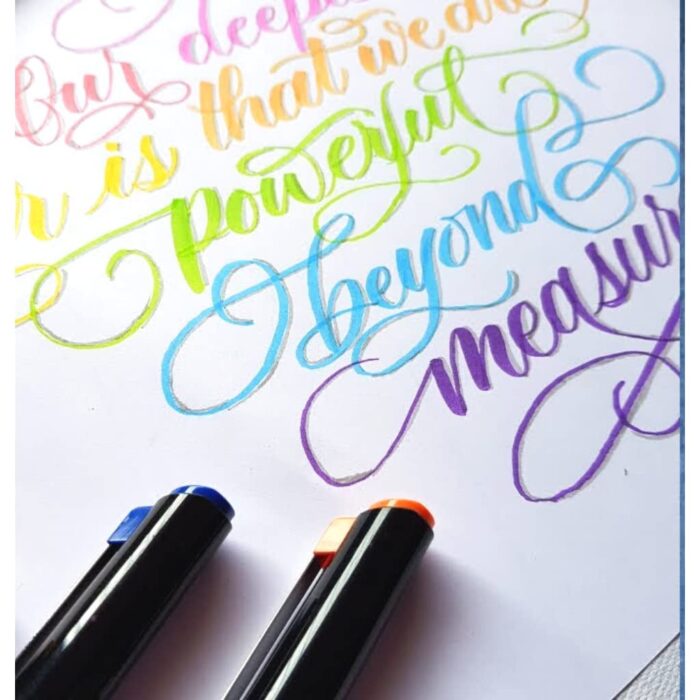 Our deep
is that we are
powerful
beyond
measur